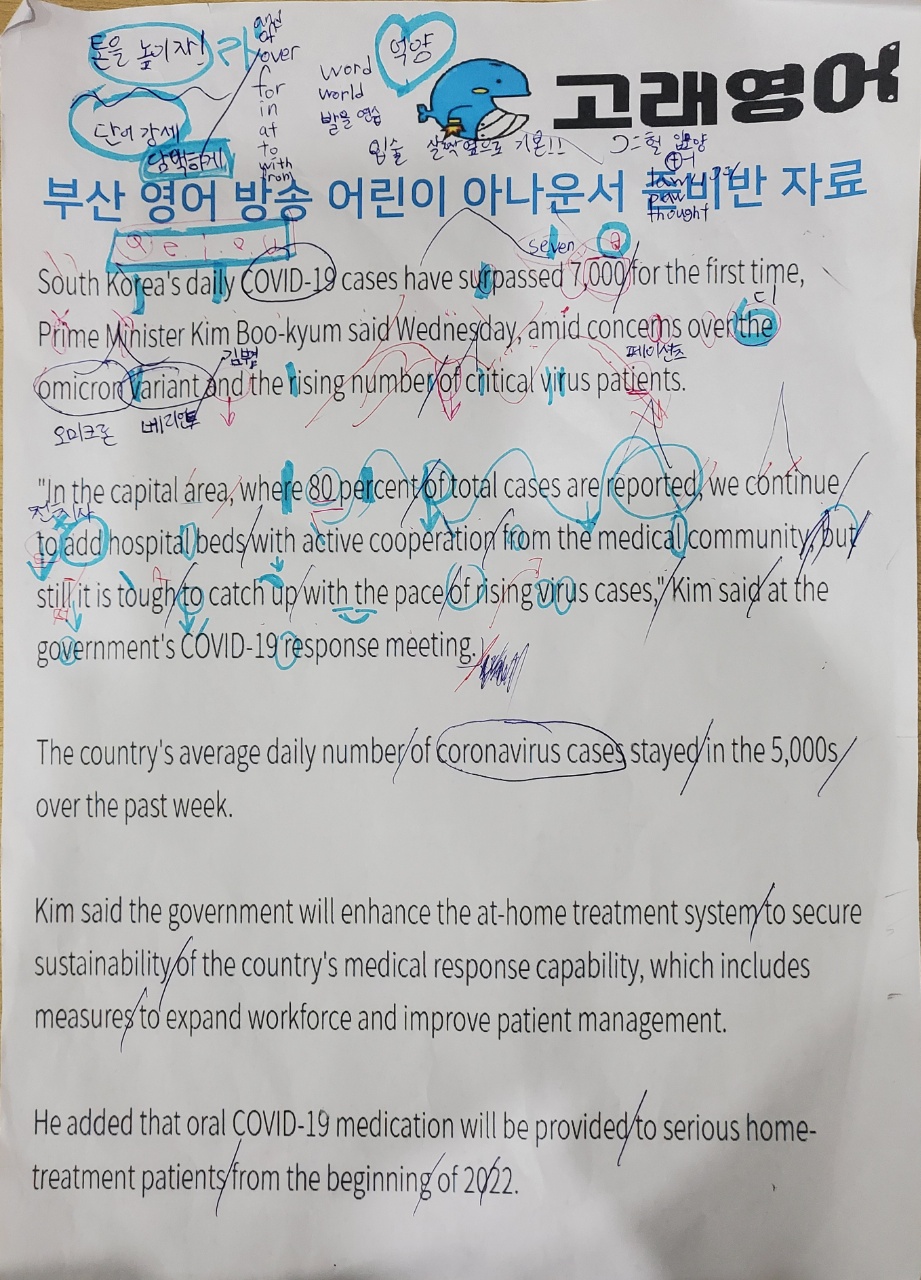 톤을 높이자!
and
of
over
for
in
at
to
with
from
억양
word
world
발음 연습
단어 강세
담백하게
고래영어
입술 살짝 옆으로 기본!!
부산 영어 방송 어린이 아나운서 준비반 자료
thought
seven
South Korea's daily COVID-19 cases have surpassed 7,000 for the first time,
디
Prime Minister Kim Boo-kyum said Wednesday, amid concerns over the
페이션츠
omicron variant and the rising number of critical virus patients.
오미크론
"In the capital area, where 80 percent of total cases are reported, we continue
전치사
to add hospital beds with active cooperation from the medical community, but
still it is tough to catch up with the pace of rising virus cases," Kim said at the
government's COVID-19 response meeting.
The country's average daily number of coronavirus cases stayed in the 5,000s
over the past week.
Kim said the government will enhance the at-home treatment system to secure
sustainability of the country's medical response capability, which includes
measures to expand workforce and improve patient management.
He added that oral COVID-19 medication will be provided to serious home-
treatment patients from the beginning of 2022.